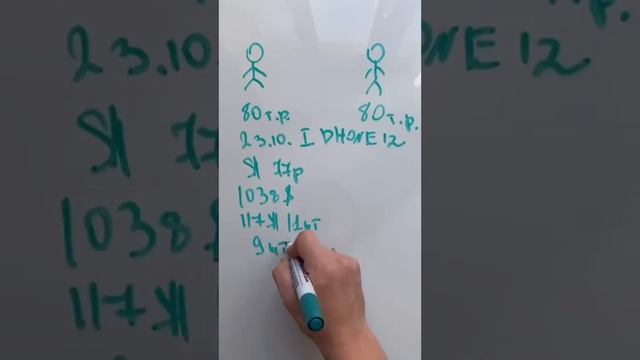 80т.р. 80т.р.
23.10. I PHONE 12
$1 77р
1038$
117$ 1шт
9шт